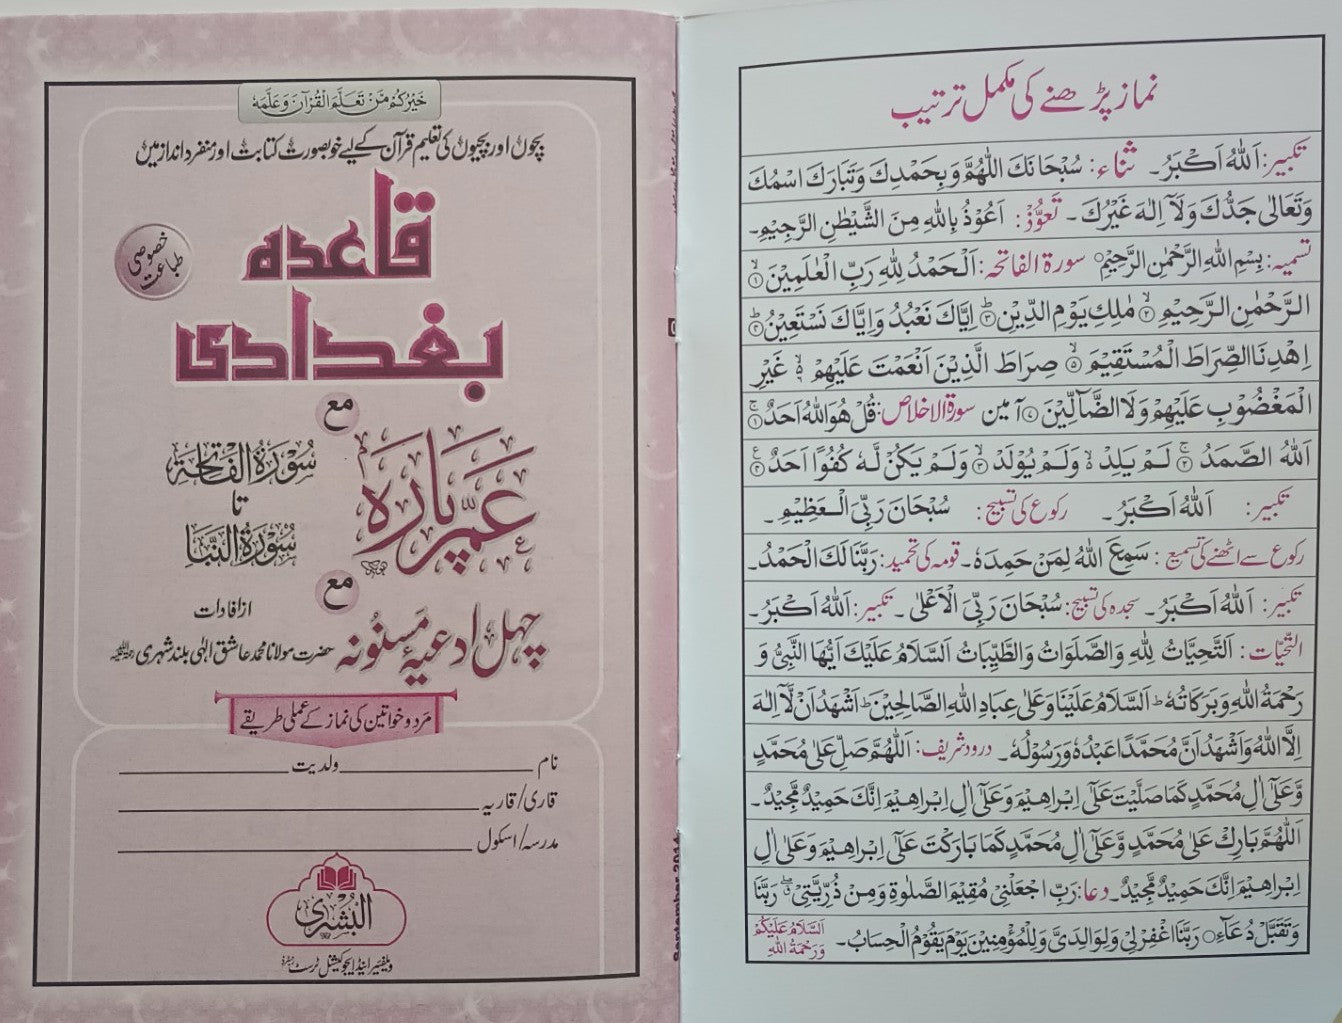 خَيْرُكُمْ مَّنْ تَعَلَّمَ الْقُرْآنَ وَعَلَّمَهُ
بچوں اور بچیوں کی تعلیم قرآن کے لیے خوبصورت کتابت اور منفرد انداز میں
قاعدہ
خصوصی
طباعت
بغدادی
مع
عَمَّ پارہ
سُوْرَةُ الْفَاتِحَة
تا
سُوْرَةُ النَّبَا
مع
چہل ادعیۂ مَسنُونہ
از افادات
حضرت مولانا محمد عاشق الٰہی بلند شہری
مرد و خواتین کی نماز کے عملی طریقے
نام ________ ولدیت ________
قاری/قاریہ ________
مدرسہ/اسکول ________
البُشریٰ
ویلفیئر اینڈ ایجوکیشنل ٹرسٹ
نماز پڑھنے کی مکمل ترتیب
تکبیر: اَللّٰهُ اَكْبَرُ۔ ثناء: سُبْحَانَكَ اللّٰهُمَّ وَبِحَمْدِكَ وَتَبَارَكَ اسْمُكَ
وَتَعَالٰى جَدُّكَ وَلَآ اِلٰهَ غَيْرُكَ۔ تعوّذ: اَعُوْذُ بِاللّٰهِ مِنَ الشَّيْطٰنِ الرَّجِيْمِ۔
تسمیہ: بِسْمِ اللّٰهِ الرَّحْمٰنِ الرَّحِيْمِ○ سورۃ الفاتحہ: اَلْحَمْدُ لِلّٰهِ رَبِّ الْعٰلَمِيْنَ ۙ﴿۱﴾
الرَّحْمٰنِ الرَّحِيْمِ ۙ﴿۲﴾ مٰلِكِ يَوْمِ الدِّيْنِ ؕ﴿۳﴾ اِيَّاكَ نَعْبُدُ وَاِيَّاكَ نَسْتَعِيْنُ ؕ﴿۴﴾
اِهْدِنَا الصِّرَاطَ الْمُسْتَقِيْمَ ۙ﴿۵﴾ صِرَاطَ الَّذِيْنَ اَنْعَمْتَ عَلَيْهِمْ ۙ۬ۦ غَيْرِ
الْمَغْضُوْبِ عَلَيْهِمْ وَلَا الضَّآلِّيْنَ ﴿۷﴾ آمین سورۃ الاخلاص: قُلْ هُوَ اللّٰهُ اَحَدٌ ۚ﴿۱﴾
اَللّٰهُ الصَّمَدُ ۚ﴿۲﴾ لَمْ يَلِدْ ۙ وَلَمْ يُوْلَدْ ۙ﴿۳﴾ وَلَمْ يَكُنْ لَّهٗ كُفُوًا اَحَدٌ ﴿۴﴾
تکبیر: اَللّٰهُ اَكْبَرُ۔ رکوع کی تسبیح: سُبْحَانَ رَبِّيَ الْعَظِيْمِ۔
رکوع سے اٹھنے کی تسمیع: سَمِعَ اللّٰهُ لِمَنْ حَمِدَهٗ۔ قومہ کی تحمید: رَبَّنَا لَكَ الْحَمْدُ۔
تکبیر: اَللّٰهُ اَكْبَرُ۔ سجدہ کی تسبیح: سُبْحَانَ رَبِّيَ الْاَعْلٰى۔ تکبیر: اَللّٰهُ اَكْبَرُ۔
التحیات: اَلتَّحِيَّاتُ لِلّٰهِ وَالصَّلَوَاتُ وَالطَّيِّبَاتُ اَلسَّلَامُ عَلَيْكَ اَيُّهَا النَّبِيُّ وَ
رَحْمَةُ اللّٰهِ وَبَرَكَاتُهٗ ؕ اَلسَّلَامُ عَلَيْنَا وَعَلٰى عِبَادِ اللّٰهِ الصَّالِحِيْنَ ؕ اَشْهَدُ اَنْ لَّآ اِلٰهَ
اِلَّا اللّٰهُ وَاَشْهَدُ اَنَّ مُحَمَّدًا عَبْدُهٗ وَرَسُوْلُهٗ۔ درود شریف: اَللّٰهُمَّ صَلِّ عَلٰى مُحَمَّدٍ
وَّعَلٰٓى اٰلِ مُحَمَّدٍ كَمَا صَلَّيْتَ عَلٰٓى اِبْرَاهِيْمَ وَعَلٰٓى اٰلِ اِبْرَاهِيْمَ اِنَّكَ حَمِيْدٌ مَّجِيْدٌ۔
اَللّٰهُمَّ بَارِكْ عَلٰى مُحَمَّدٍ وَّعَلٰٓى اٰلِ مُحَمَّدٍ كَمَا بَارَكْتَ عَلٰٓى اِبْرَاهِيْمَ وَعَلٰٓى اٰلِ
اِبْرَاهِيْمَ اِنَّكَ حَمِيْدٌ مَّجِيْدٌ۔ دعا: رَبِّ اجْعَلْنِيْ مُقِيْمَ الصَّلٰوةِ وَمِنْ ذُرِّيَّتِيْ ۖ رَبَّنَا
وَتَقَبَّلْ دُعَآءِ○ رَبَّنَا اغْفِرْ لِيْ وَلِوَالِدَيَّ وَلِلْمُؤْمِنِيْنَ يَوْمَ يَقُوْمُ الْحِسَابُ۔ اَلسَّلَامُ عَلَيْكُمْ
وَرَحْمَةُ اللّٰهِ
September 2014